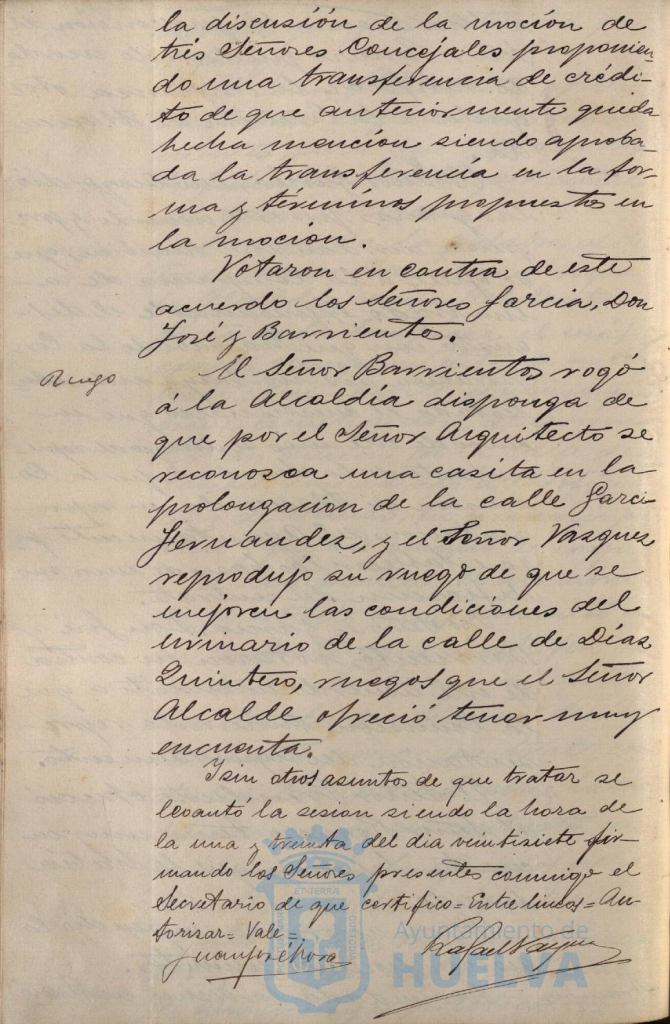 la discusión de la moción de
tres Señores Concejales proponien-
do una transferencia de crédi-
to de que anteriormente queda
hecha mención siendo aproba-
da la transferencia en la for-
ma y términos propuestos en
la moción.
Votaron en contra de este
acuerdo los Señores Garcia, Don
José y Barrientos.
Ruego
El Señor Barrientos rogó
á la Alcaldía disponga de
que por el Señor Arquitecto se
reconosca una casita en la
prolongacion de la calle Garci
Fernandez, y el Señor Vazquez
reprodujo su ruego de que se
mejoren las condiciones del
urinario de la calle de Díaz
Quintero, ruegos que el Señor
Alcalde ofreció tener muy
encuenta.
Y sin otros asuntos de que tratar se
levantó la sesion siendo la hora de
la una y treinta del dia veintisiete fir-
mando los Señores presentes conmigo el
Secretario de que certifico = Entre lineas = Au-
torizar = Vale =
Juan José Mora
Rafael
ET TERRÆ
Ayuntamiento de
HUELVA